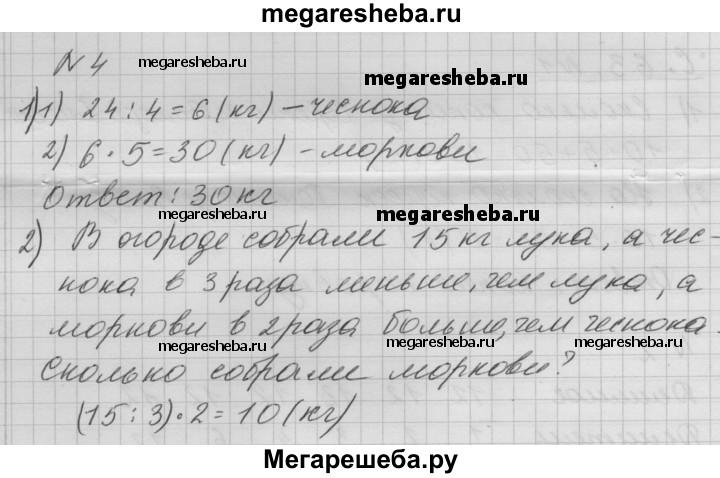 megaresheba.ru
N 4 megaresheba.ru megaresheba.ru
1) 1) 24 : 4 = 6 (кг) – чеснока
2) 6 · 5 = 30 (кг) – моркови
Ответ: 30 кг
megaresheba.ru megaresheba.ru
2) В огороде собрали 15 кг лука, а чес-
нока в 3 раза меньше, чем лука, а
моркови в 2 раза больше, чем чеснока.
megaresheba.ru megaresheba.ru megaresheba.ru
Сколько собрали моркови?
(15 : 3) · 2 = 10 (кг)
Мегарешеба.ру